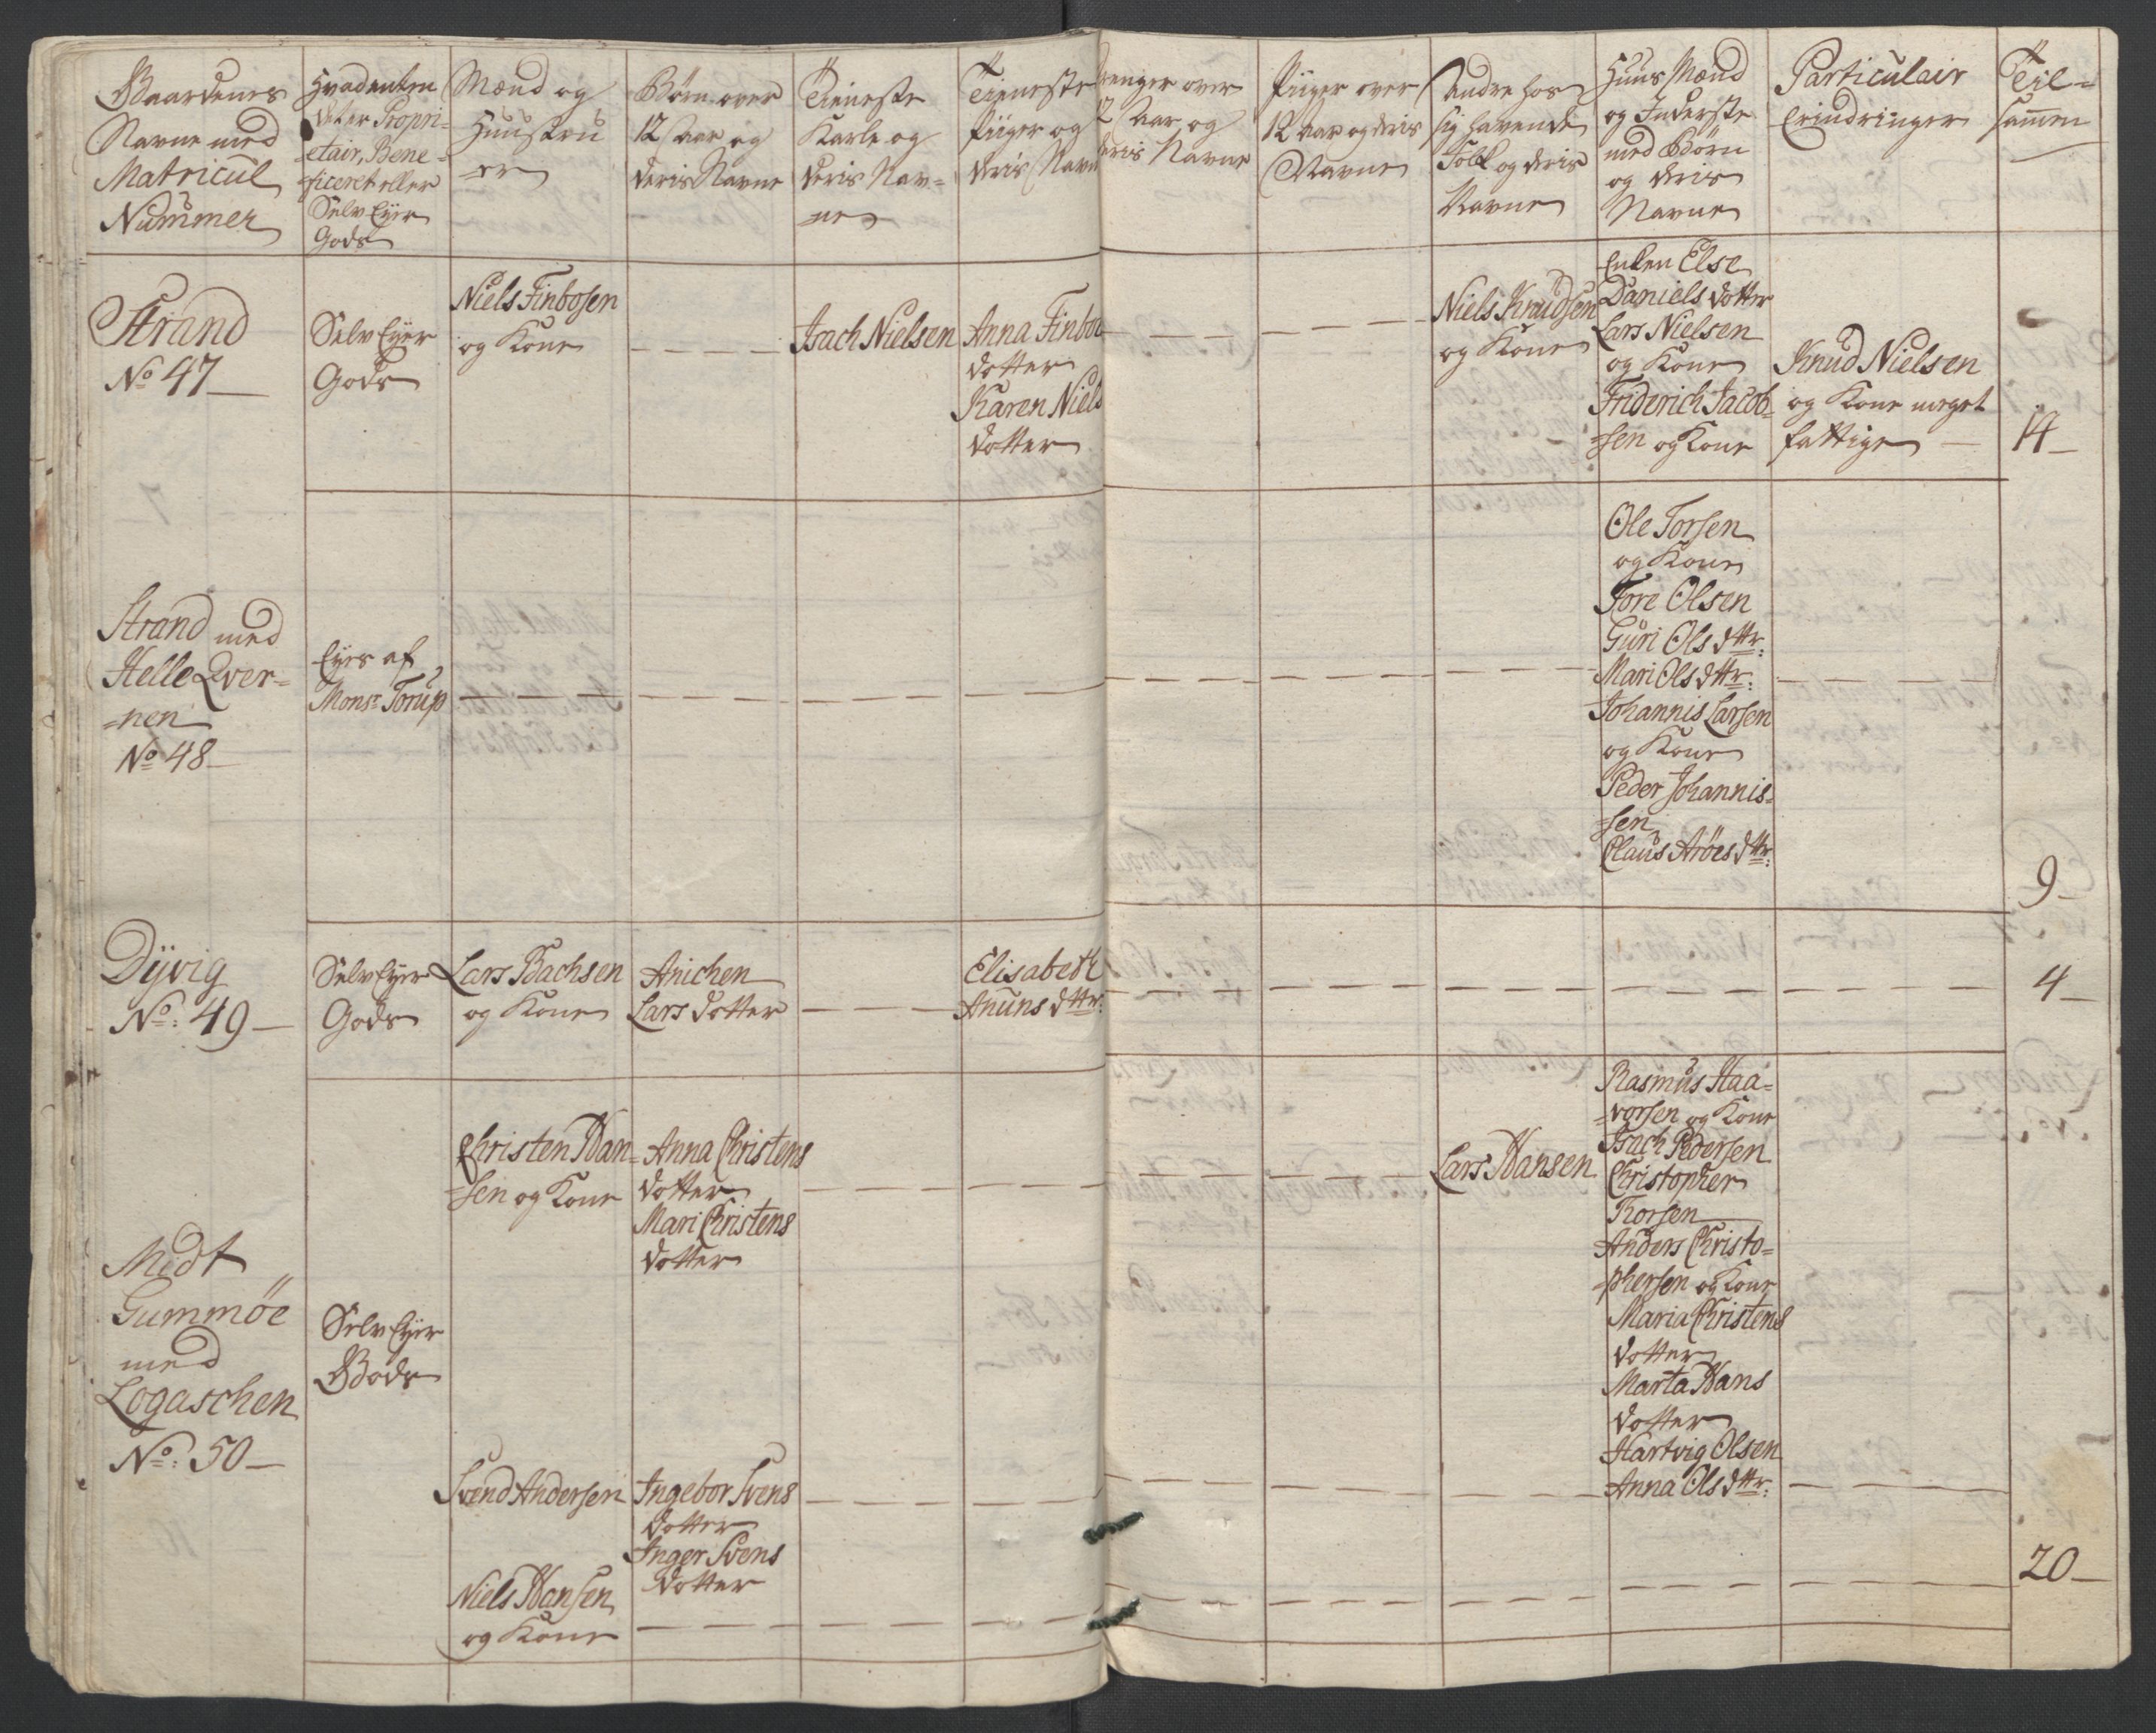 Gaardenes
Navne med
Matricul
Nummer
Hvad enten
det er Propri-
etair, Bene-
ficeret eller
Selv Eyer
Gods
Mænd og
Huustru
er
Børn over
12 Aar og
deris Navne
Tieneste
Karle og
deris Nav=
ne
Tieneste
Piiger og
deris Navn
Drenger over
12 Aar og
deris Navne
Piiger over
12 Aar og deris
Navne
Andre hos
sig havende
Folk og deris
Navne
Huus Mænd
og Inderste
med Børn
og deris
Navne
Particulair
Erindringer
Til=
sammen
Strand
No 47
Selv Eyer
Gods
Niels Finbosen
og Kone
Isach Nielsen
Anna Finboe
dotter
Karen Niels
dotter
Niels Knudsen
og Kone
Enken Else
Daniels dotter
Lars Nielsen
og Kone
Friderich Jacob=
=sen og Kone
Knud Nielsen
og Kone meget
fattige
14
Strand med
Helle Qver=
=nen
No 48
Eyes af
Monsr Torup
Ole Torsen
og Kone
Tore Olsen
Guri Ols dttr:
Mari Ols dttr:
Johannis Larsen
og Kone
Peder Johannis=
=sen
Claus Aröes dttr:
9
Dyvig
No: 49
Selv Eyer
Gods
Lars Bachsen
og Kone
Anichen
Lars dotter
Elisabeth
Anuns dttr:
4
Midt
Gummöe
med
Logaschen
No: 50
Selv Eyer
Gods
Christen Han=
=sen og Kone
Anna Christens
dotter
Mari Christens
dotter
Lars Hansen
Rasmus Haa=
=vorsen og Kone
Isach Pedersen
Christopher
Thorsen
Anders Christo=
=phersen og Kone
Maria Christens
dotter
Marta Hans
dotter
Hartvig Olsen
Anna Ols dttr:
Svend Andersen
Ingebor Svens
dotter
Inger Svens
dotter
Niels Hansen
og Kone
20